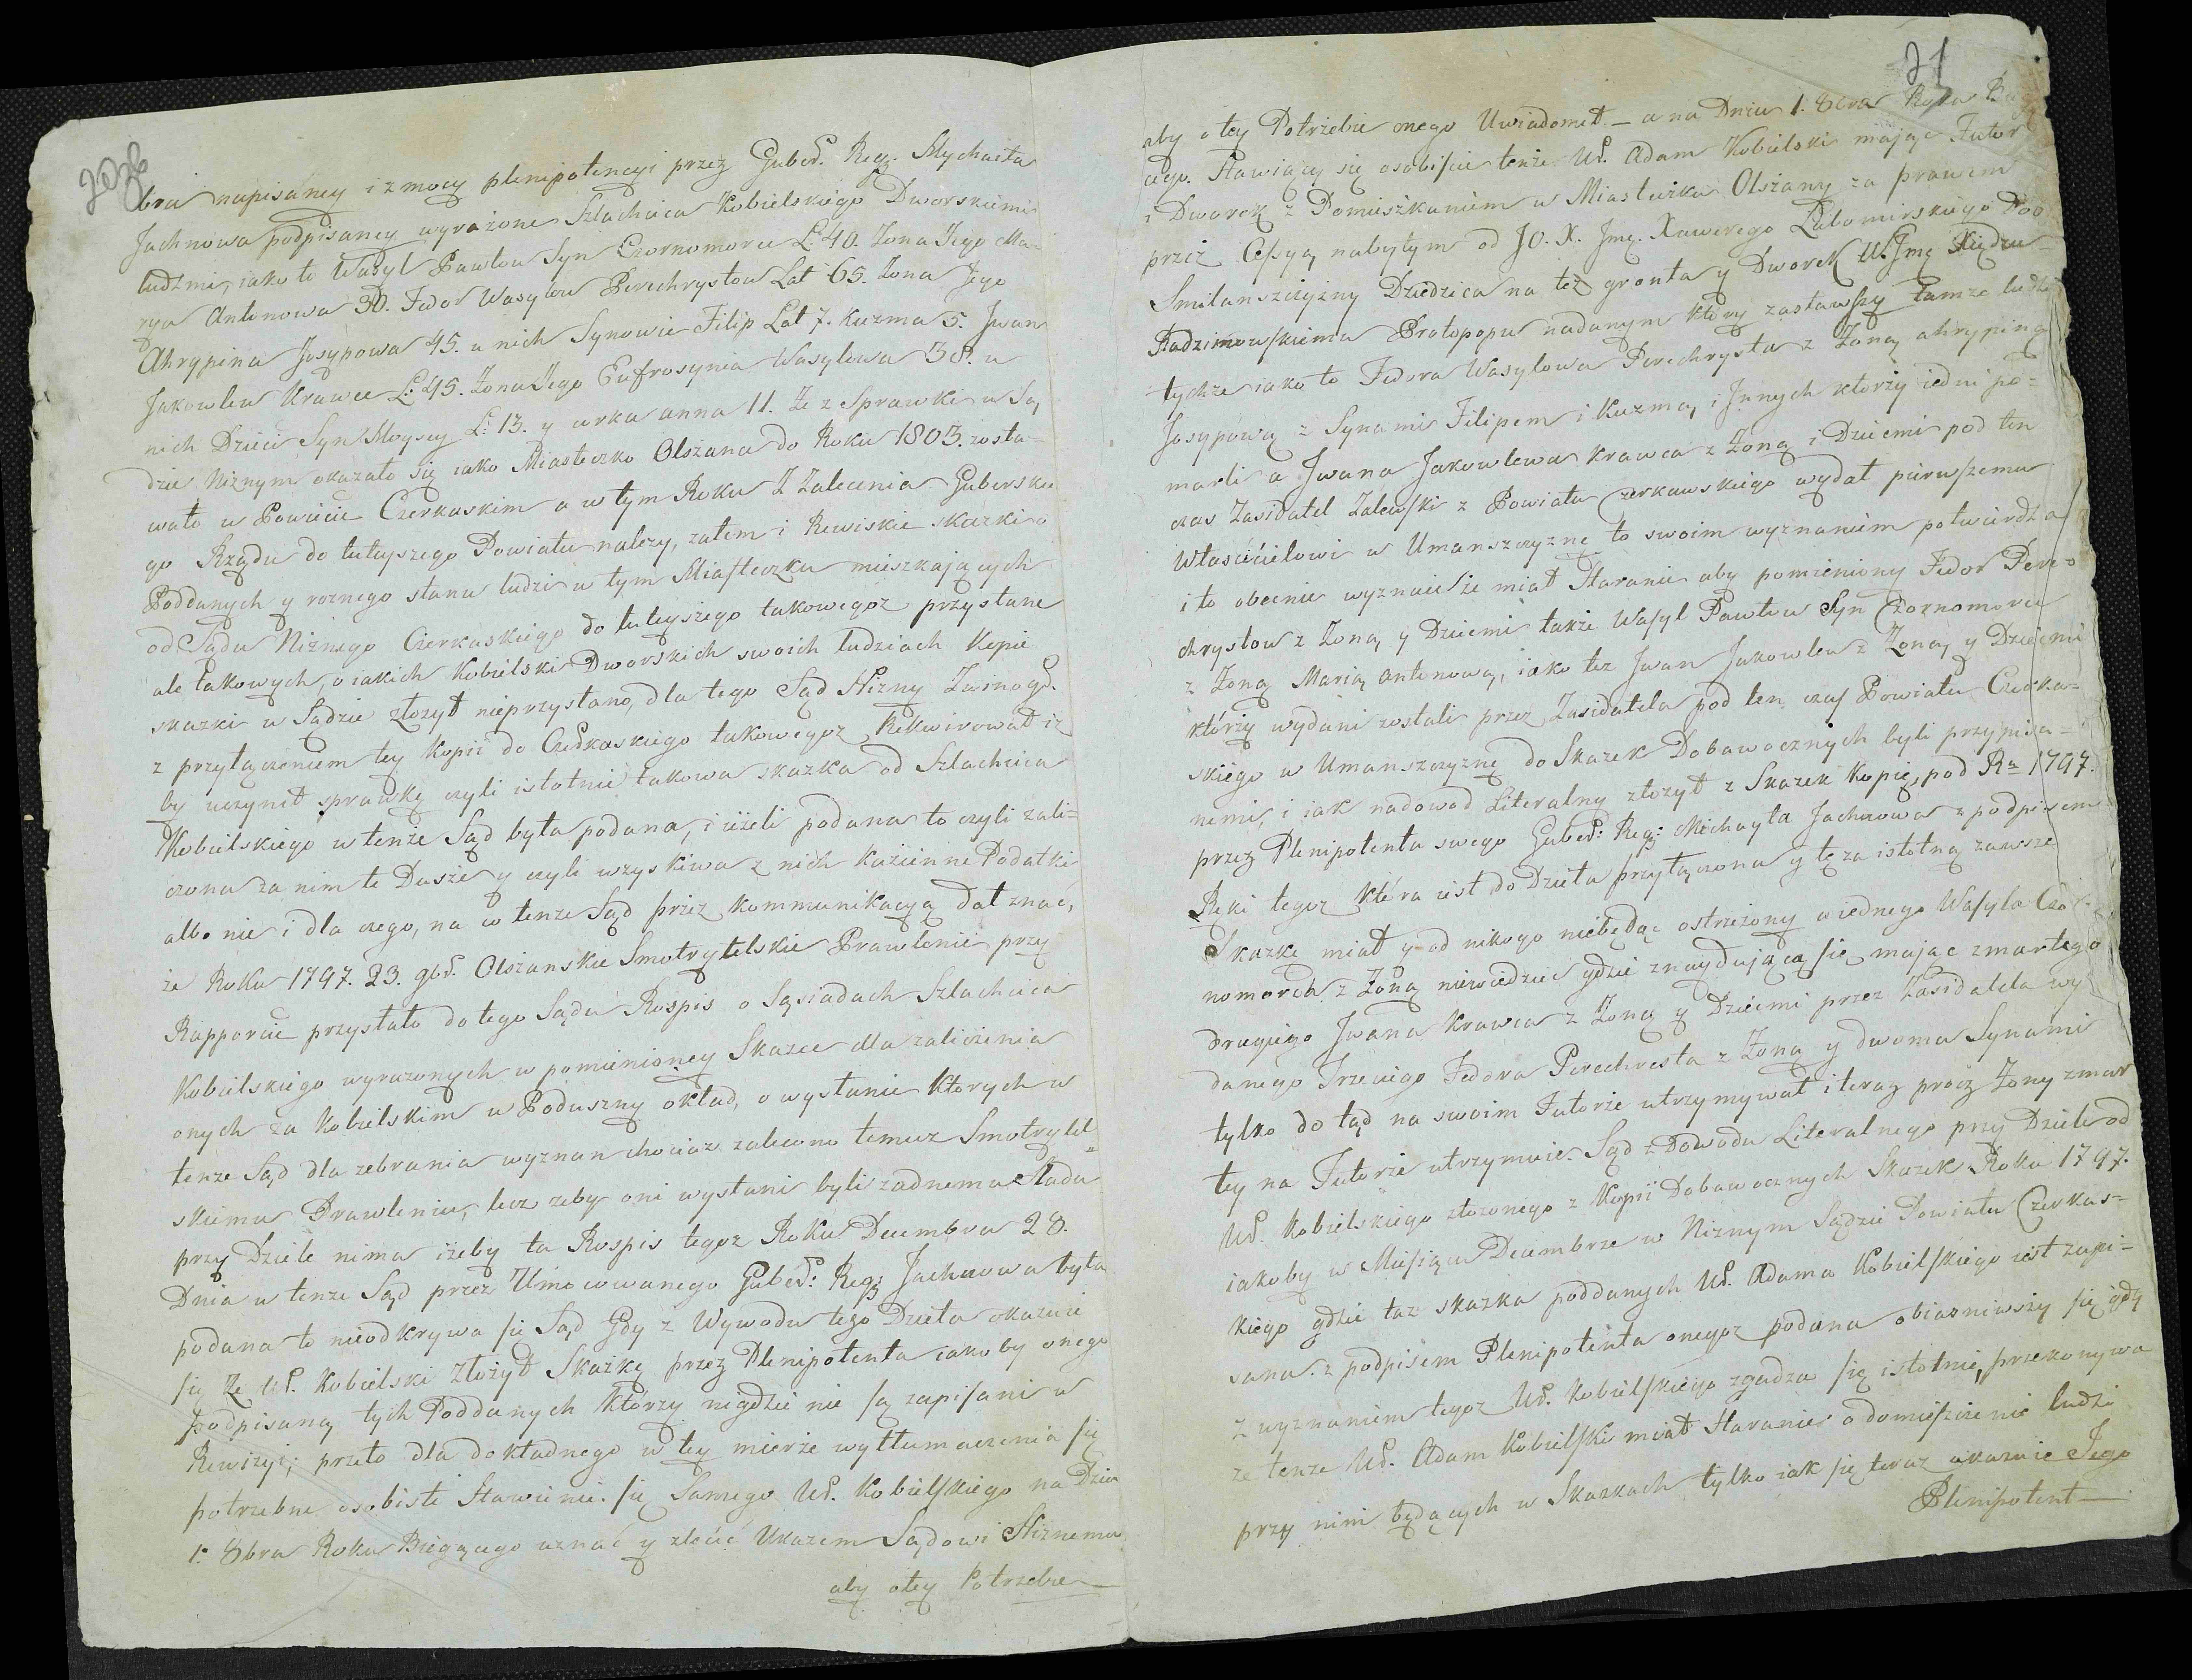 bra napisaney i z mocy plenipotencyi przez Guber. Reg. Mychaiła
Jachnowa podpisaney wyrażone Szlachcica Kobielskiego Dworskiemi
ludzmi, iako to Wasyl Pawłow Syn Czornomorce L: 40. Zona Jego Ma-
rya Antonowa 30. Fedor Wasylow Perechrystow Lat 65. Zona Jego
Ahrypina Josypowa 45. u nich Synowie Filip Lat 7. Kuzma 5. Jwan
Jakowlew Krawce L: 45. Zona Jego Eufrosynia Wasylowa 38. u
nich Dzieci Syn Moysey L: 13. y corka anna 11. Ze z Sprawki w Są
dzie Niznym okazało się iako Miasteczko Olszana do Roku 1803. zosta-
wało w Powiecie Czerkaskim a w tym Roku Z Zalecenia Gubersku
go Rządu do tuteyszego Powiatu nalezy, zatem i Rewiskie skazki o
Poddanych y roznego stanu ludzi w tym Miasteczku mieszkaiących
od Sądu Niznego Czerkaskiego do tuteyszego takowegoz przysłane
ale takowych, o iakich Kobielski Dworskich swoich ludziach Kopie
skazki w Sądzie złozył nieprzysłano, dla tego Sąd Nizny Zwinogd.
z przyłączeniem tey kopii do Czerkaskiego takowegoz Rekwirował iz
by uczynił sprawkę czyli istotnie takowa skazka od Szlachcica
Kobielskiego w tenże Sąd była podana, i ieżeli podana to czyli zali-
czona za nim te Dusze y czyli wzyskiwa z nich każienne Podatki
albo nie i dla czego, na co tenze Sąd przez kommunikacyą dał znać,
że Roku 1797. 23. 9bra. Olszanskie Smotrytelskie Prawlenie przy
Rapporcie przysłało do tego Sądu Rospis o Sąsiadach Szlachcica
Kobielskiego wyrazonych w pomienioney Skazce dla zaliczenia
onych za Kobielskim w Poduszny okład, o wysłanie ktorych w
tenze Sąd dla zebrania wyznan chociaz zalecono temuz Smotrytel-
skiemu Prawleniu, lecz zeby oni wysłani byli zadnemu sladu
przy Dziele nima iżeby ta Rospis tegoz Roku Decembra 28.
Dnia w tenze Sąd przez Umocowanego Guber: Reg: Jachnowa była
podana to nieodkrywa się Sąd Gdy z Wywodu tego Dzieła okazuie
się Ze Ur. Kobielski Złożył Skażkę przez Plenipotenta iakoby onego
podpisaną tych Poddanych Którzy nigdzie nie są zapisani w
Rewizyi; przeto dla dokładnego w tey mierze wytłumaczenia się
potrzebne osobiste stawienie się Samego Ur. Kobielskiego na Dzień
1. 8bra Roku Bieżącego uznać y zlecić Ukazem Sądowi Niznemu
aby o tey Potrzebie
21
aby o tey Potrzebie onego Uwiadomił — a na Dniu 1. 8bra Roku
cego. Stawiący się osobiście tenże Ur. Adam Kobielski maiąc Futor
i Dworek z Pomieszkaniem w Miasteczku Olszany za prawem
przez Cessyą nabytym od JO. X. Jmę. Xawerego Lubomirskiego Poo
Smilanszczyzny Dziedzica na też gronta y Dworek W. Jmę Xiędzu
Radzimowskiemu Protopopu nadanym który zastawszy tamze ludzi
tychze iako to Fedora Wasylowa Perechrysta z Zoną ahrypiną
Josypową z Synami Filipem i Kuzmą, i Jnnych ktorży iedni po-
marli a Jwana Jakowlewa krawca z Zoną i Dziećmi pod ten
czas Zasidatel Zalewski z Powiatu Czerkawskiego wydał pierwszemu
Własćićielowi w Umanszczyznę to swoim wyznaniem potwierdza
i to obecnie wyznaie że miał staranie aby pomieniony Fedor Pere-
chrystow z Zoną y Dziećmi także Wasyl Pawłow Syn Czornomorce
z Zoną Marią antonową, iako też Jwan Jakowlew z Zoną y Dziećmi
którży wydani zostali przez Zasidatela pod ten czas Powiatu Czerka-
skiego w Umanszczyznę do Skazek Dobawocznych byli przypisa-
nemi, i iak nadowod Literalny złożył z Skazek Kopię, pod Ru 1797.
przez Plenipotenta swego Guber: Reg: Michayła Jachnowa z podpisem
Ręki tegoz która iest do Dzieła przyłączona y tę za istotną zawsze
Skazkę miał y od nikogo niebędąc ostrzeżony a iednego Wasyla Czo
nomorca z Zoną niewiedzieć gdzie znayduiącą się maiąc zmarłego
drugiego Jwana Krawca z Zoną y Dziećmi przez Zasidatela wy
danego Trzeciego Fedora Perechresta z Zoną y dwoma Synami
tylko do tąd na swoim Futorze utrzymywał i teraz procz Zony zmar
tey na Futorze utrzymuie. Sąd z Dowodu Literalnego przy Dziele od
Ur. Kobielskiego złozonego z Kopii Dobawocznych Skazek Roku 1797.
iakoby w Miesiącu Decembrze w Niznym Sądzie Powiatu Czerkas-
kiego gdzie taz skazka poddanych Ur. Adama Kobielskiego iest zapi-
sana. z podpisem Plenipotenta onegoz podana obiasniwszy się gdy
z wyznaniem tegoz Ur. Kobielskiego zgadza się istotnie, przekonywa
ze tenze Ur. Adam Kobielski miał staranie o domieszczenie ludzi
przy nim będących w Skazkach tylko iak się teraz okazuie Jego
Plenipotent